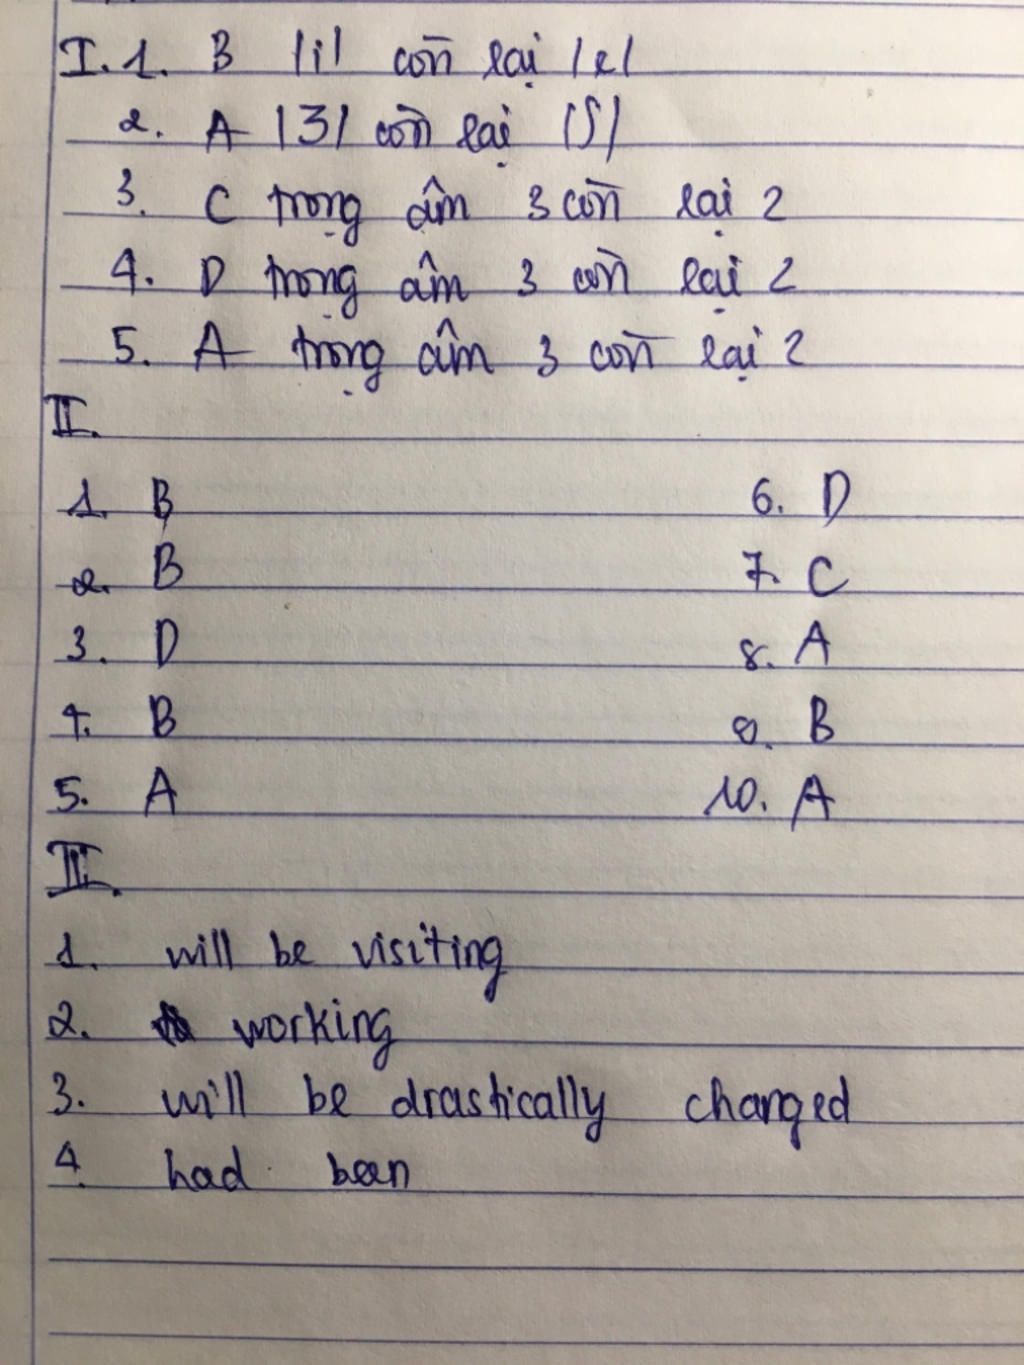 I. 1. B /i/ còn lại /e/
2. A /ʒ/ còn lại /ʃ/
3. C trọng âm 3 còn lại 2
4. D trọng âm 3 còn lại 2
5. A trọng âm 3 còn lại 2
II.
1. B 6. D
2. B 7. C
3. D 8. A
4. B 9. B
5. A 10. A
III.
1. will be visiting
2. working
3. will be drastically changed
4. had been